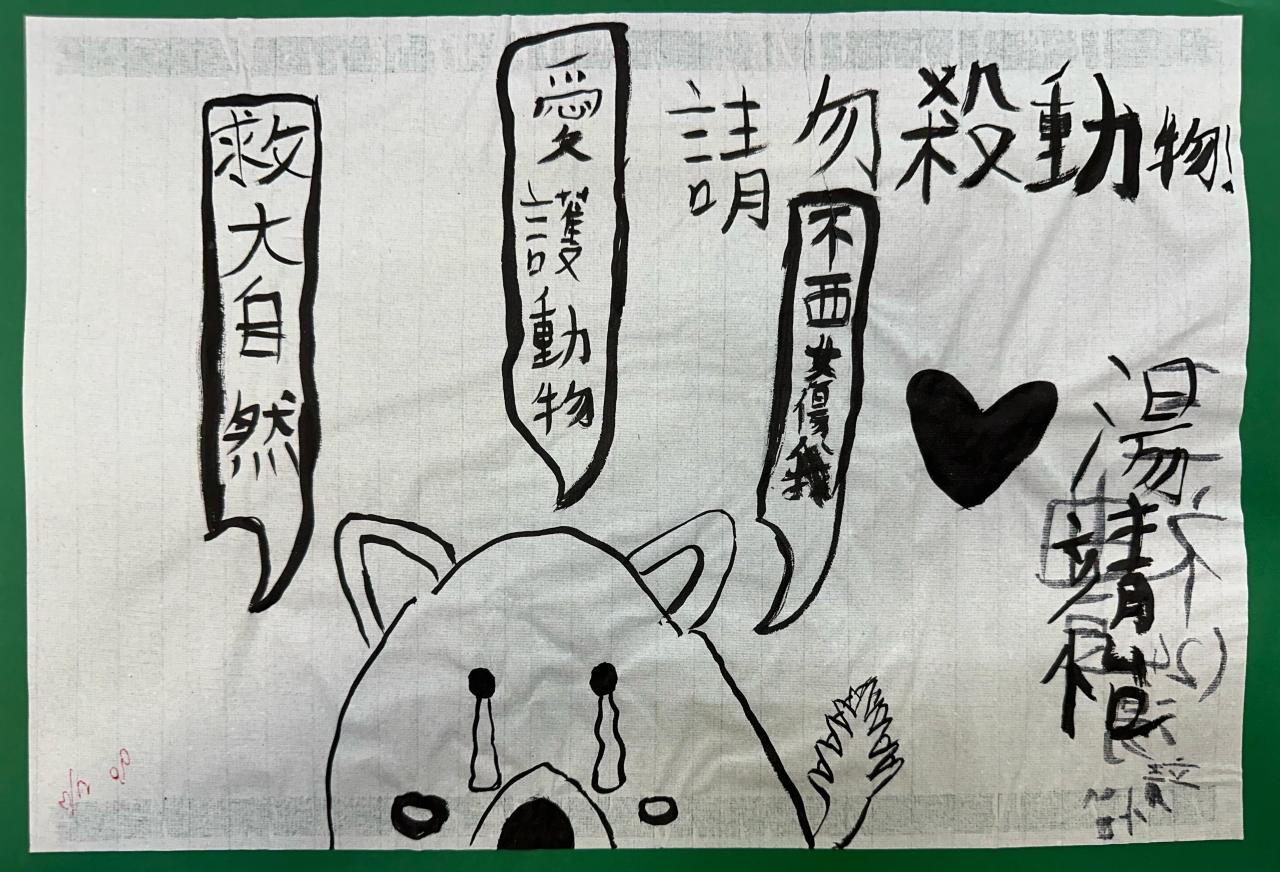 請勿殺動物!
救大自然
愛護動物
不要傷我
湯靖